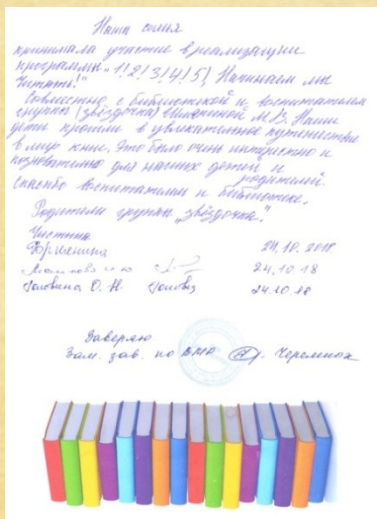 Наша семья
принимала участие в реализации
программы „1! 2! 3! 4! 5! Начинаем мы
Читать!"
Совместно с библиотекой и воспитателем
группы (звёздочка) М.В. Наши
дети прошли в увлекательное путешествие
в мир книг. Это было очень интересно и
познавательно для наших детей и
родителей.
Спасибо воспитателям и библиотеке.
Родители группы „звёздочка".
24.10.2018
24.10.18
Головина О. Н. 24.10.18
Заверяю
Зам. зав. по ВМР Черемных